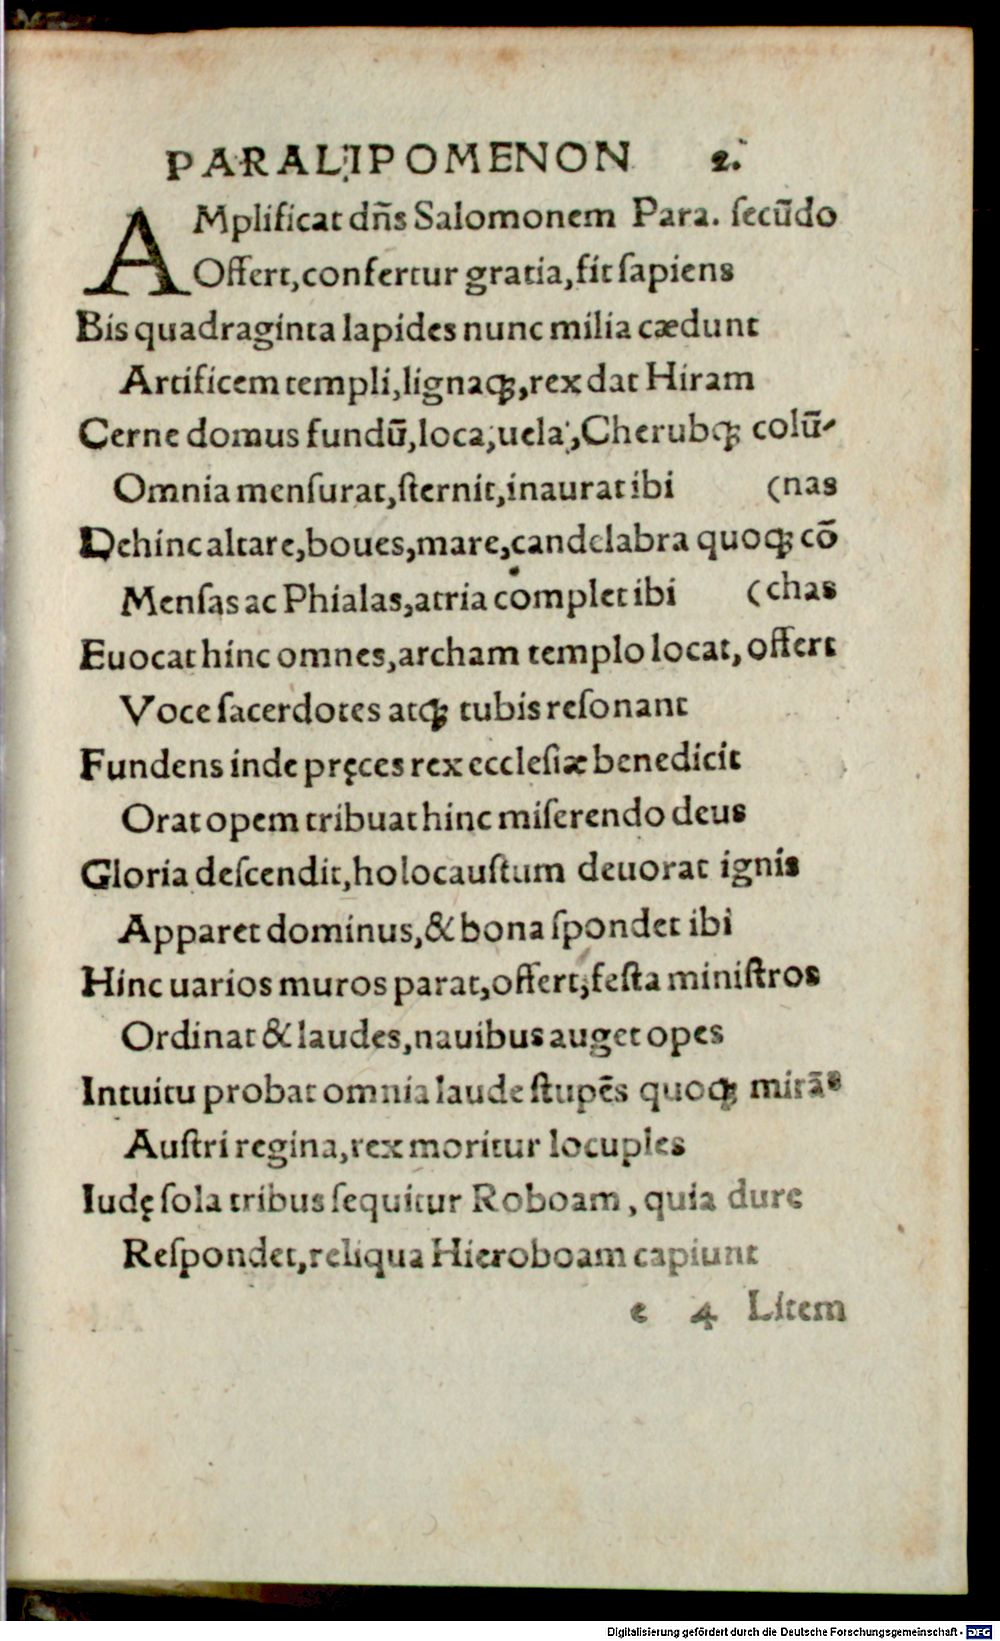 PARALIPOMENON 2.
AMplificat dn̄s Salomonem Para. ſecūdo
Offert,confertur gratia,fit ſapiens
Bis quadraginta lapides nunc milia cædunt
Artificem templi,lignaqꝫ,rex dat Hiram
Cerne domus fundū,loca,uela,Cherubqꝫ colū-
Omnia menſurat,ſternit,inaurat ibi (nas
Dehinc altare,boues,mare,candelabra quoqꝫ cō
Menſas ac Phialas,atria complet ibi (chas
Euocat hinc omnes,archam templo locat,offert
Voce ſacerdotes atqꝫ tubis reſonant
Fundens inde pręces rex eccleſiæ benedicit
Orat opem tribuat hinc miſerendo deus
Gloria deſcendit,holocauſtum deuorat ignis
Apparet dominus,& bona ſpondet ibi
Hinc uarios muros parat,offert,feſta miniſtros
Ordinat & laudes,nauibus auget opes
Intuitu probat omnia laude ſtupēs quoqꝫ mirās
Auſtri regina,rex moritur locuples
Iudę ſola tribus ſequitur Roboam, quia dure
Reſpondet,reliqua Hieroboam capiunt
e 4 Litem
Digitalisierung gefördert durch die Deutsche Forschungsgemeinschaft - DFG